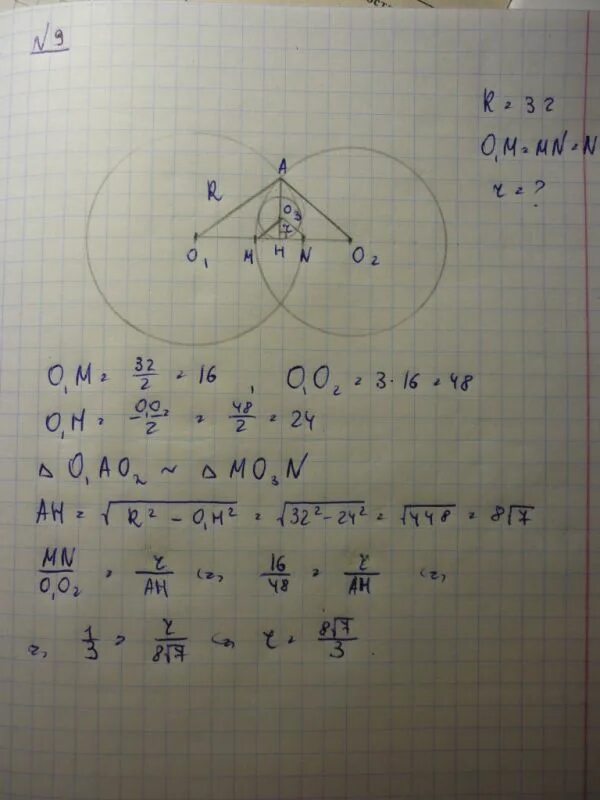 N 9
R = 32
O₁M = MN = N
r = ?
A
R
O₃
r
O₁ M H N O₂
O₁M = 32/2 = 16 , O₁O₂ = 3·16 = 48
O₁H = O₁O₂/2 = 48/2 = 24
△ O₁AO₂ ~ △ MO₃N
AH = √(R² − O₁H²) = √(32² − 24²) = √448 = 8√7
MN/O₁O₂ = r/AH <=> 16/48 = r/AH <=>
<=> 1/3 = r/8√7 <=> r = 8√7/3.